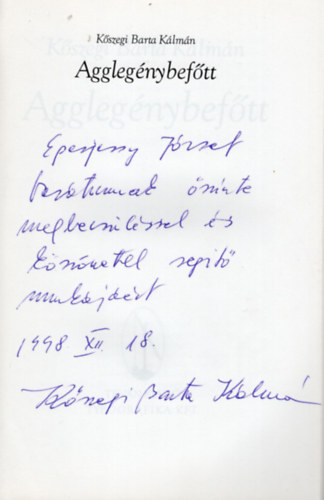 Kőszegi Barta Kálmán
Agglegénybefőtt
Eperjessy József
barátunknak őszinte
megbecsüléssel és
köszönettel segítő
munkájáért
1998 XII. 18.
Kőszegi Barta Kálmán